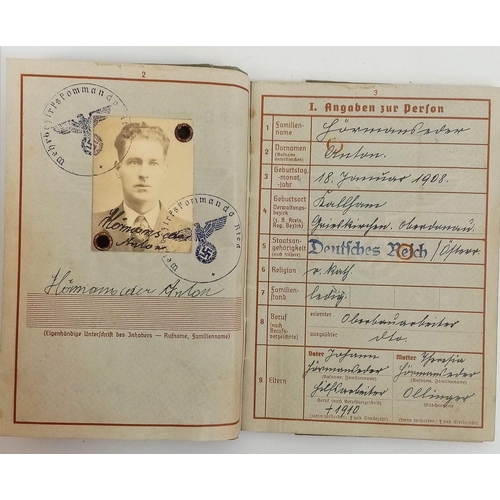 2
Wehrbezirkskommando
Wehrbezirkskommando Ried
Hörmanseder
Anton
Hörmanseder Anton
(Eigenhändige Unterschrift des Inhabers — Rufname, Familienname)
3
I. Angaben zur Person
1 Familienname Hörmanseder
2 Vornamen (Rufname unterstreichen) Anton.
3 Geburtstag, -monat, -jahr 18. Januar 1908.
4 Geburtsort Kallham
Verwaltungsbezirk (z. B. Kreis, Reg.-Bezirk) Grieskirchen, Oberdonau.
5 Staatsangehörigkeit (auch frühere) Deutsches Reich / Österr
6 Religion r. kath.
7 Familienstand ledig.
8 Beruf (nach Berufsverzeichnis) erlernter Oberbauarbeiter
ausgeübter dto.
9 Eltern
Vater Johann
Hörmanseder
(Rufname, Familienname)
Hilfsarbeiter
Beruf (nach Berufsverzeichnis)
+ 1910
Mutter Theresia
Hörmanseder
(Rufname, Familienname)
Ollinger
(Mädchenname)